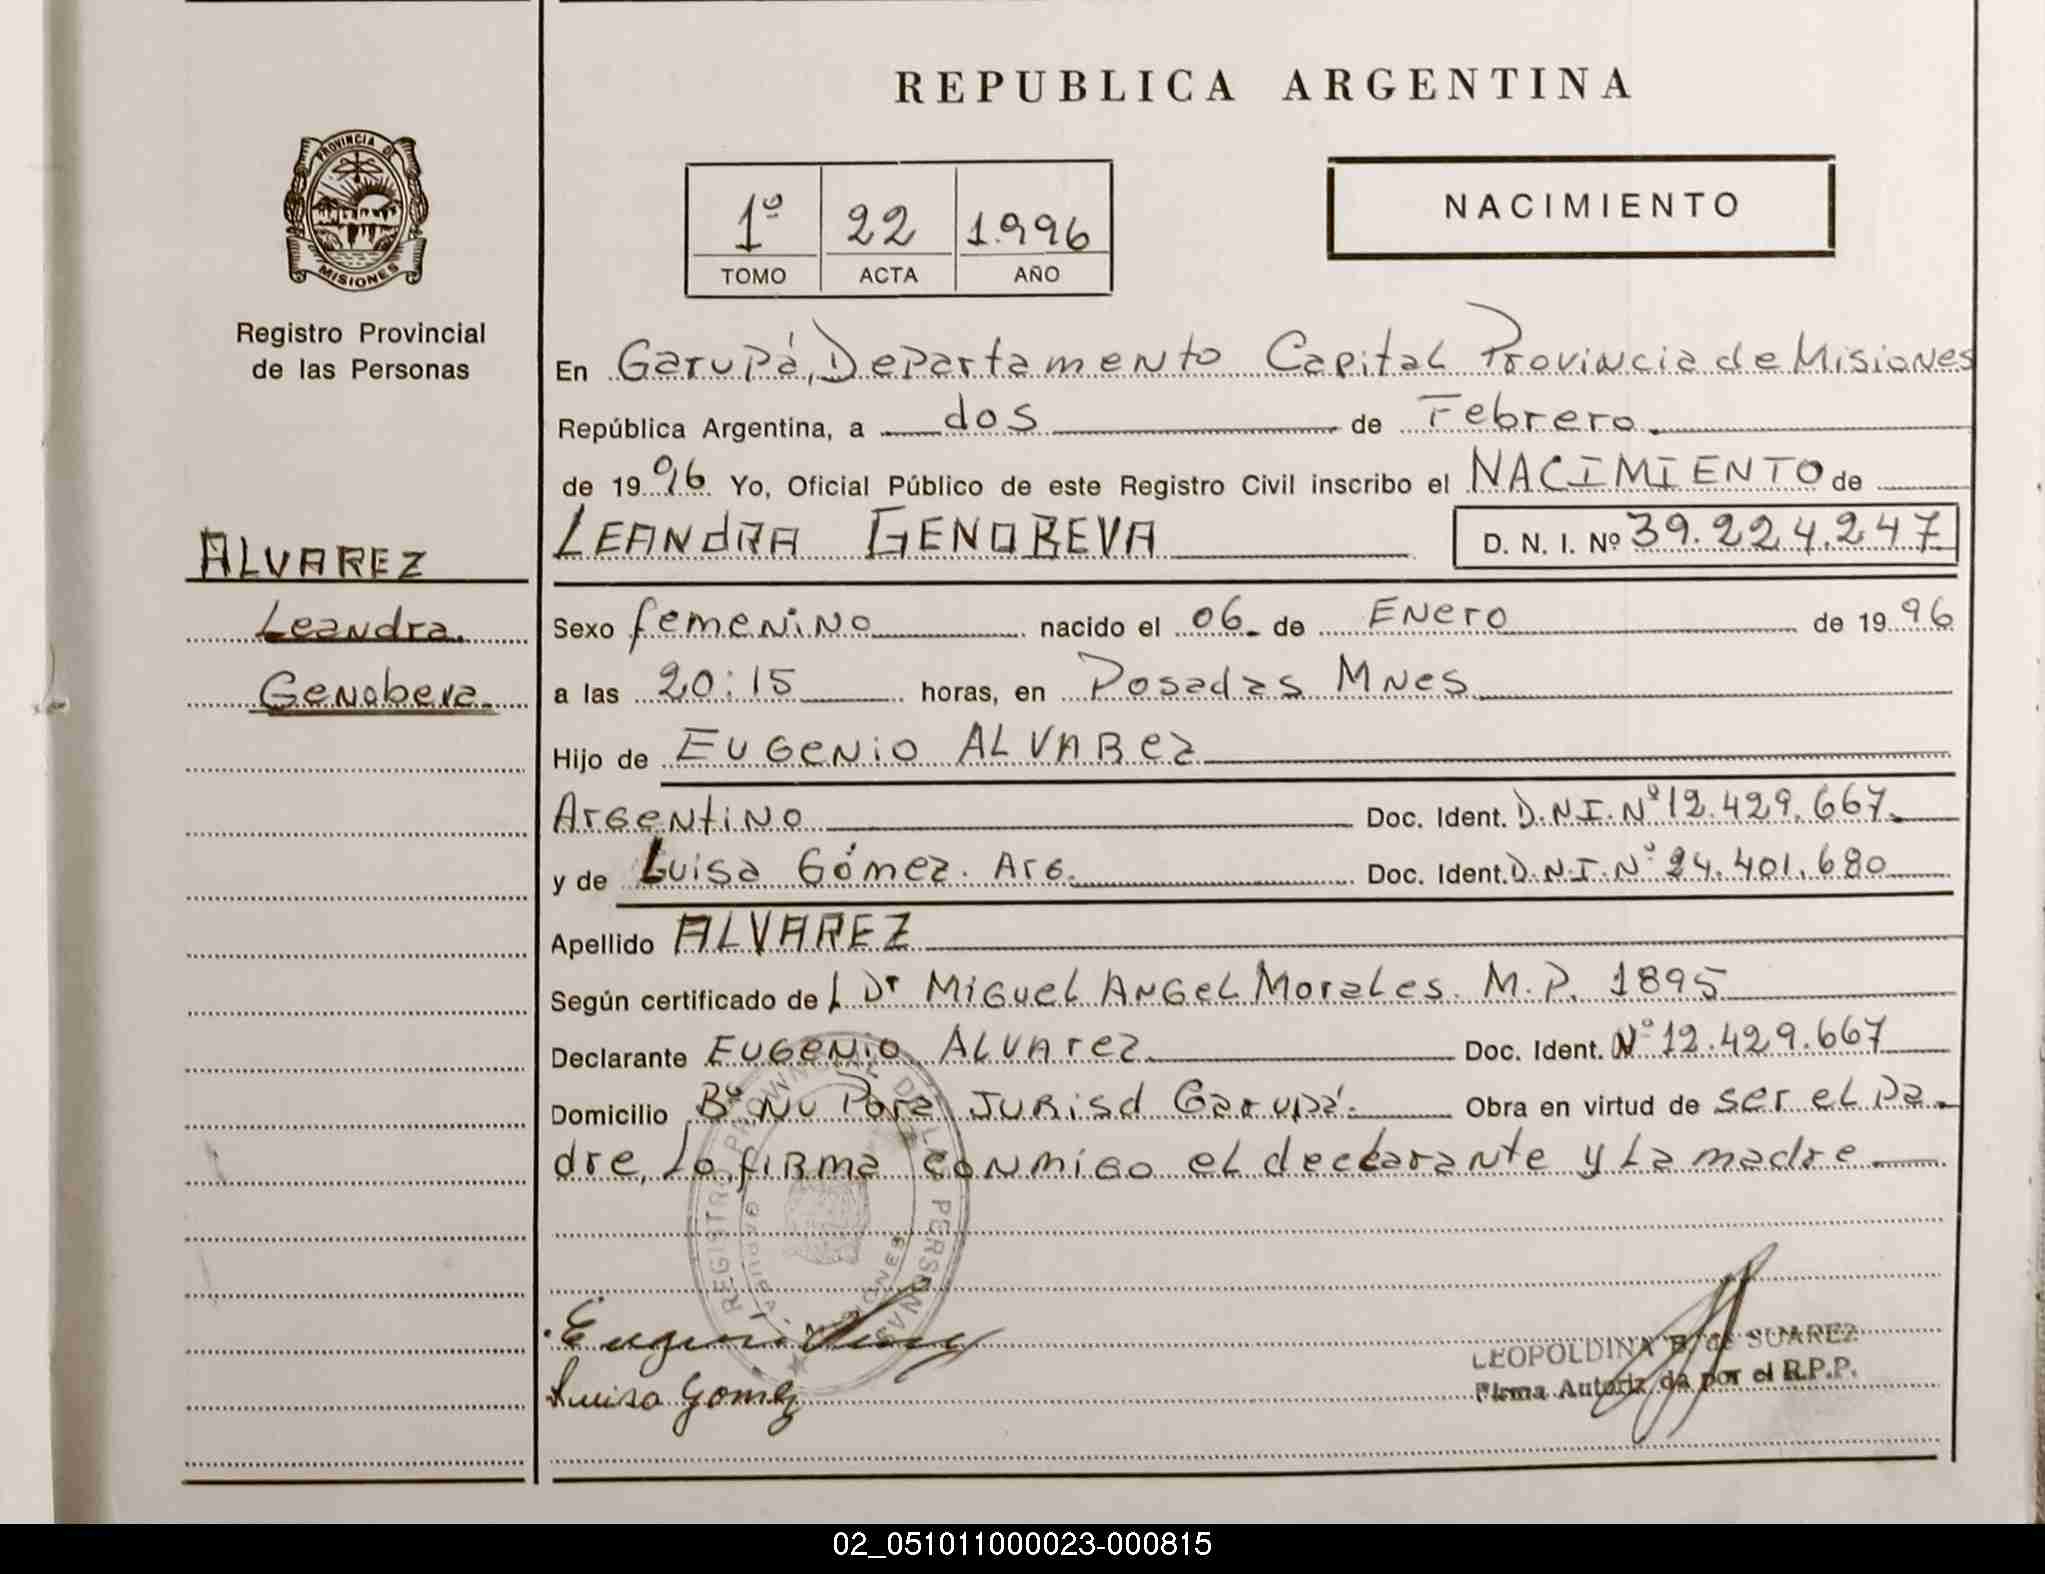 REPUBLICA ARGENTINA
PROVINCIA DE
MISIONES
Registro Provincial
de las Personas
1º 22 1.996
TOMO ACTA AÑO
NACIMIENTO
En Garupá, Departamento Capital Provincia de Misiones
República Argentina, a dos de Febrero
de 1996 Yo, Oficial Público de este Registro Civil inscribo el NACIMIENTO de
LEANDRA GENOBEVA D. N. I. Nº 39.224.247
ALVAREZ
Leandra
Genobeva
Sexo femenino nacido el 06 de Enero de 1996
a las 20:15 horas, en Posadas Mnes
Hijo de Eugenio ALVAREZ
Argentino Doc. Ident. D.N.I.Nº 12.429.667
y de Luisa Gómez. Arg. Doc. Ident. D.N.I.Nº 24.401.680
Apellido ALVAREZ
Según certificado de Dr Miguel Angel Morales. M.P. 1895
Declarante Eugenio ALVArez Doc. Ident. Nº 12.429.667
Domicilio Bº Ñu Porá Jurisd Garupá. Obra en virtud de ser el pa
dre, La firma conmigo el declarante y La madre
REGISTRO PROVINCIAL DE LAS PERSONAS
GARUPA
MISIONES
Eugenio
Luisa Gomez
LEOPOLDINA B. de SUAREZ
Firma Autorizada por el R.P.P.
02_051011000023-000815